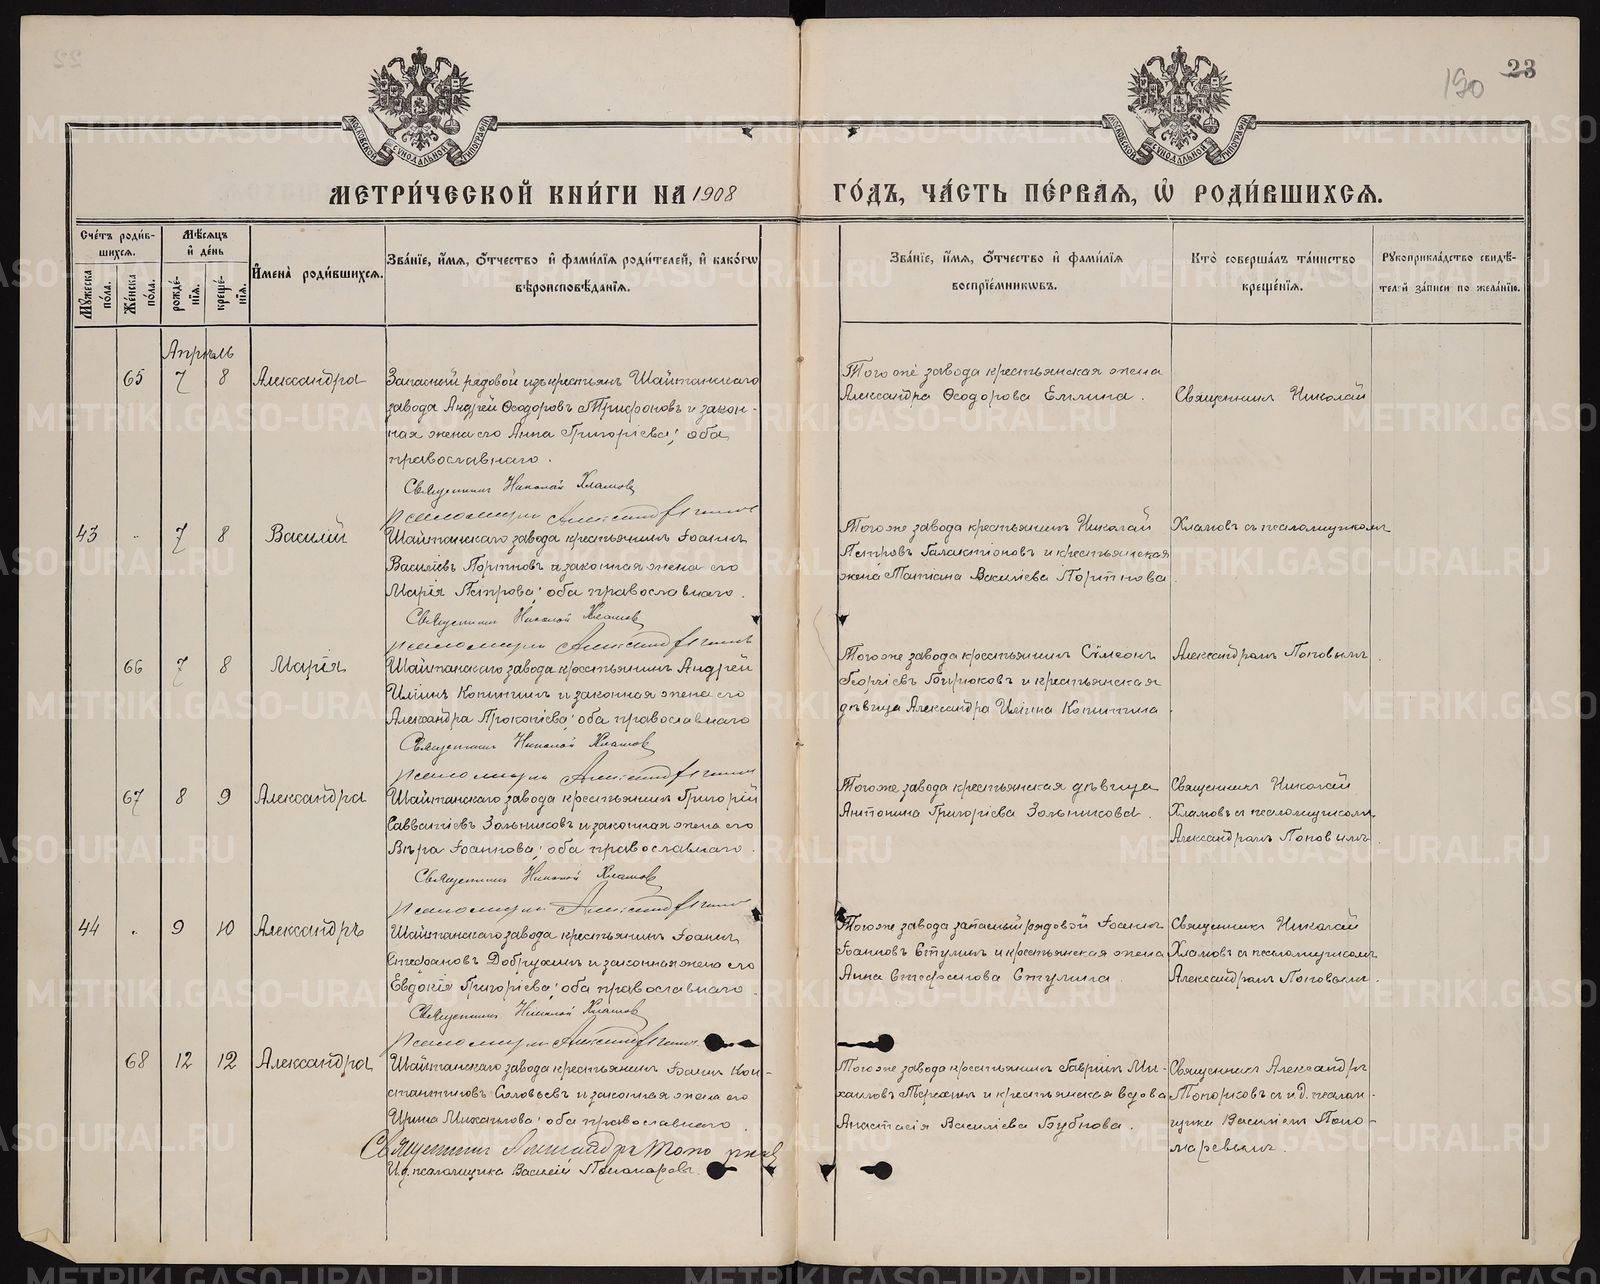 23
190
МЕТРИ́ЧЕСКОЙ КНИ́ГИ НА 1908 ГО́ДЪ, ЧА́СТЬ ПЕ́РВАѦ, Ѽ РОДИ́ВШИХСѦ.
Сче́тъ роди́вшихсѧ.
Мꙋ́жеска по́ла.
Же́нска по́ла.
Мѣ́сѧцъ и҆ де́нь
рожде́нїѧ.
креще́нїѧ.
И҆мена̀ роди́вшихсѧ.
Зва́нїе, и҆́мѧ, ѻ҆́тчество и҆ фами́лїѧ роди́телей, и҆ како́гѡ вѣроисповѣ́данїѧ.
Зва́нїе, и҆́мѧ, ѻ҆́тчество и҆ фами́лїѧ воспрїе́мникѡвъ.
Кто̀ соверша́лъ та́инство креще́нїѧ.
Рꙋкоприкла́дство свидѣ́телей за́писи по жела́нїю.
Апрѣль
65 7 8 Александра
Запасный рядовой изъ крестьянъ Шайтанскаго
завода Андрей Ѳеодоровъ Трифоновъ и закон-
ная жена его Анна Григорієва; оба
православнаго.
Священникъ Николай Хламовъ
Псаломщикъ Александръ
Того же завода крестьянская жена
Александра Ѳеодорова Еллина.
Священникъ Николай
43 " 7 8 Василій
Шайтанскаго завода крестьянинъ Іоаннъ
Василіевъ Портновъ и законная жена его
Марія Петрова; оба православнаго.
Священникъ Николай Хламовъ
Псаломщикъ Александръ
Того же завода крестьянинъ Николай
Петровъ Галактіоновъ и крестьянская
жена Татіана Василіева Портнова.
Хламовъ съ псаломщикомъ
66 7 8 Марія
Шайтанскаго завода крестьянинъ Андрей
Иліинъ Копытинъ и законная жена его
Александра Прокопіева; оба православнаго
Священникъ Николай Хламовъ
Псаломщикъ Александръ
Того же завода крестьянинъ Сѵмеонъ
Георгіевъ Бирюковъ и крестьянская
дѣвица Александра Иліина Копытина.
Александромъ Поповымъ.
67 8 9 Александра
Шайтанскаго завода крестьянинъ Григорій
Савватіевъ Зольниковъ и законная жена его
Вѣра Іоаннова; оба православнаго.
Священникъ Николай Хламовъ
Псаломщикъ Александръ
Того же завода крестьянская дѣвица
Антонина Григоріева Зольникова.
Священникъ Николай
Хламовъ съ псаломщикомъ
Александромъ Поповымъ.
44 " 9 10 Александръ
Шайтанскаго завода крестьянинъ Іоаннъ
Стефановъ Добрухинъ и законная жена его
Евдокія Григоріева; оба православнаго.
Священникъ Николай Хламовъ
Псаломщикъ Александръ
Того же завода запасный рядовой Іоаннъ
Іоанновъ Стулинъ и крестьянская жена
Анна Стефанова Стулина.
Священникъ Николай
Хламовъ съ псаломщикомъ
Александромъ Поповымъ.
68 12 12 Александра
Шайтанскаго завода крестьянинъ Іоаннъ Кон-
стантиновъ Соловьевъ и законная жена его
Ирина Михаилова; оба православнаго.
Священникъ Александръ Топорковъ
И.д. псаломщика Василій Пономаревъ.
Того же завода крестьянинъ Гавріилъ Ми-
хаиловъ Терехинъ и крестьянская вдова
Анастасія Василіева Бубнова.
Священникъ Александръ
Топорковъ съ и.д. псалом-
щика Василіемъ Поно-
маревымъ.
METRIKI.GASO-URAL.RU